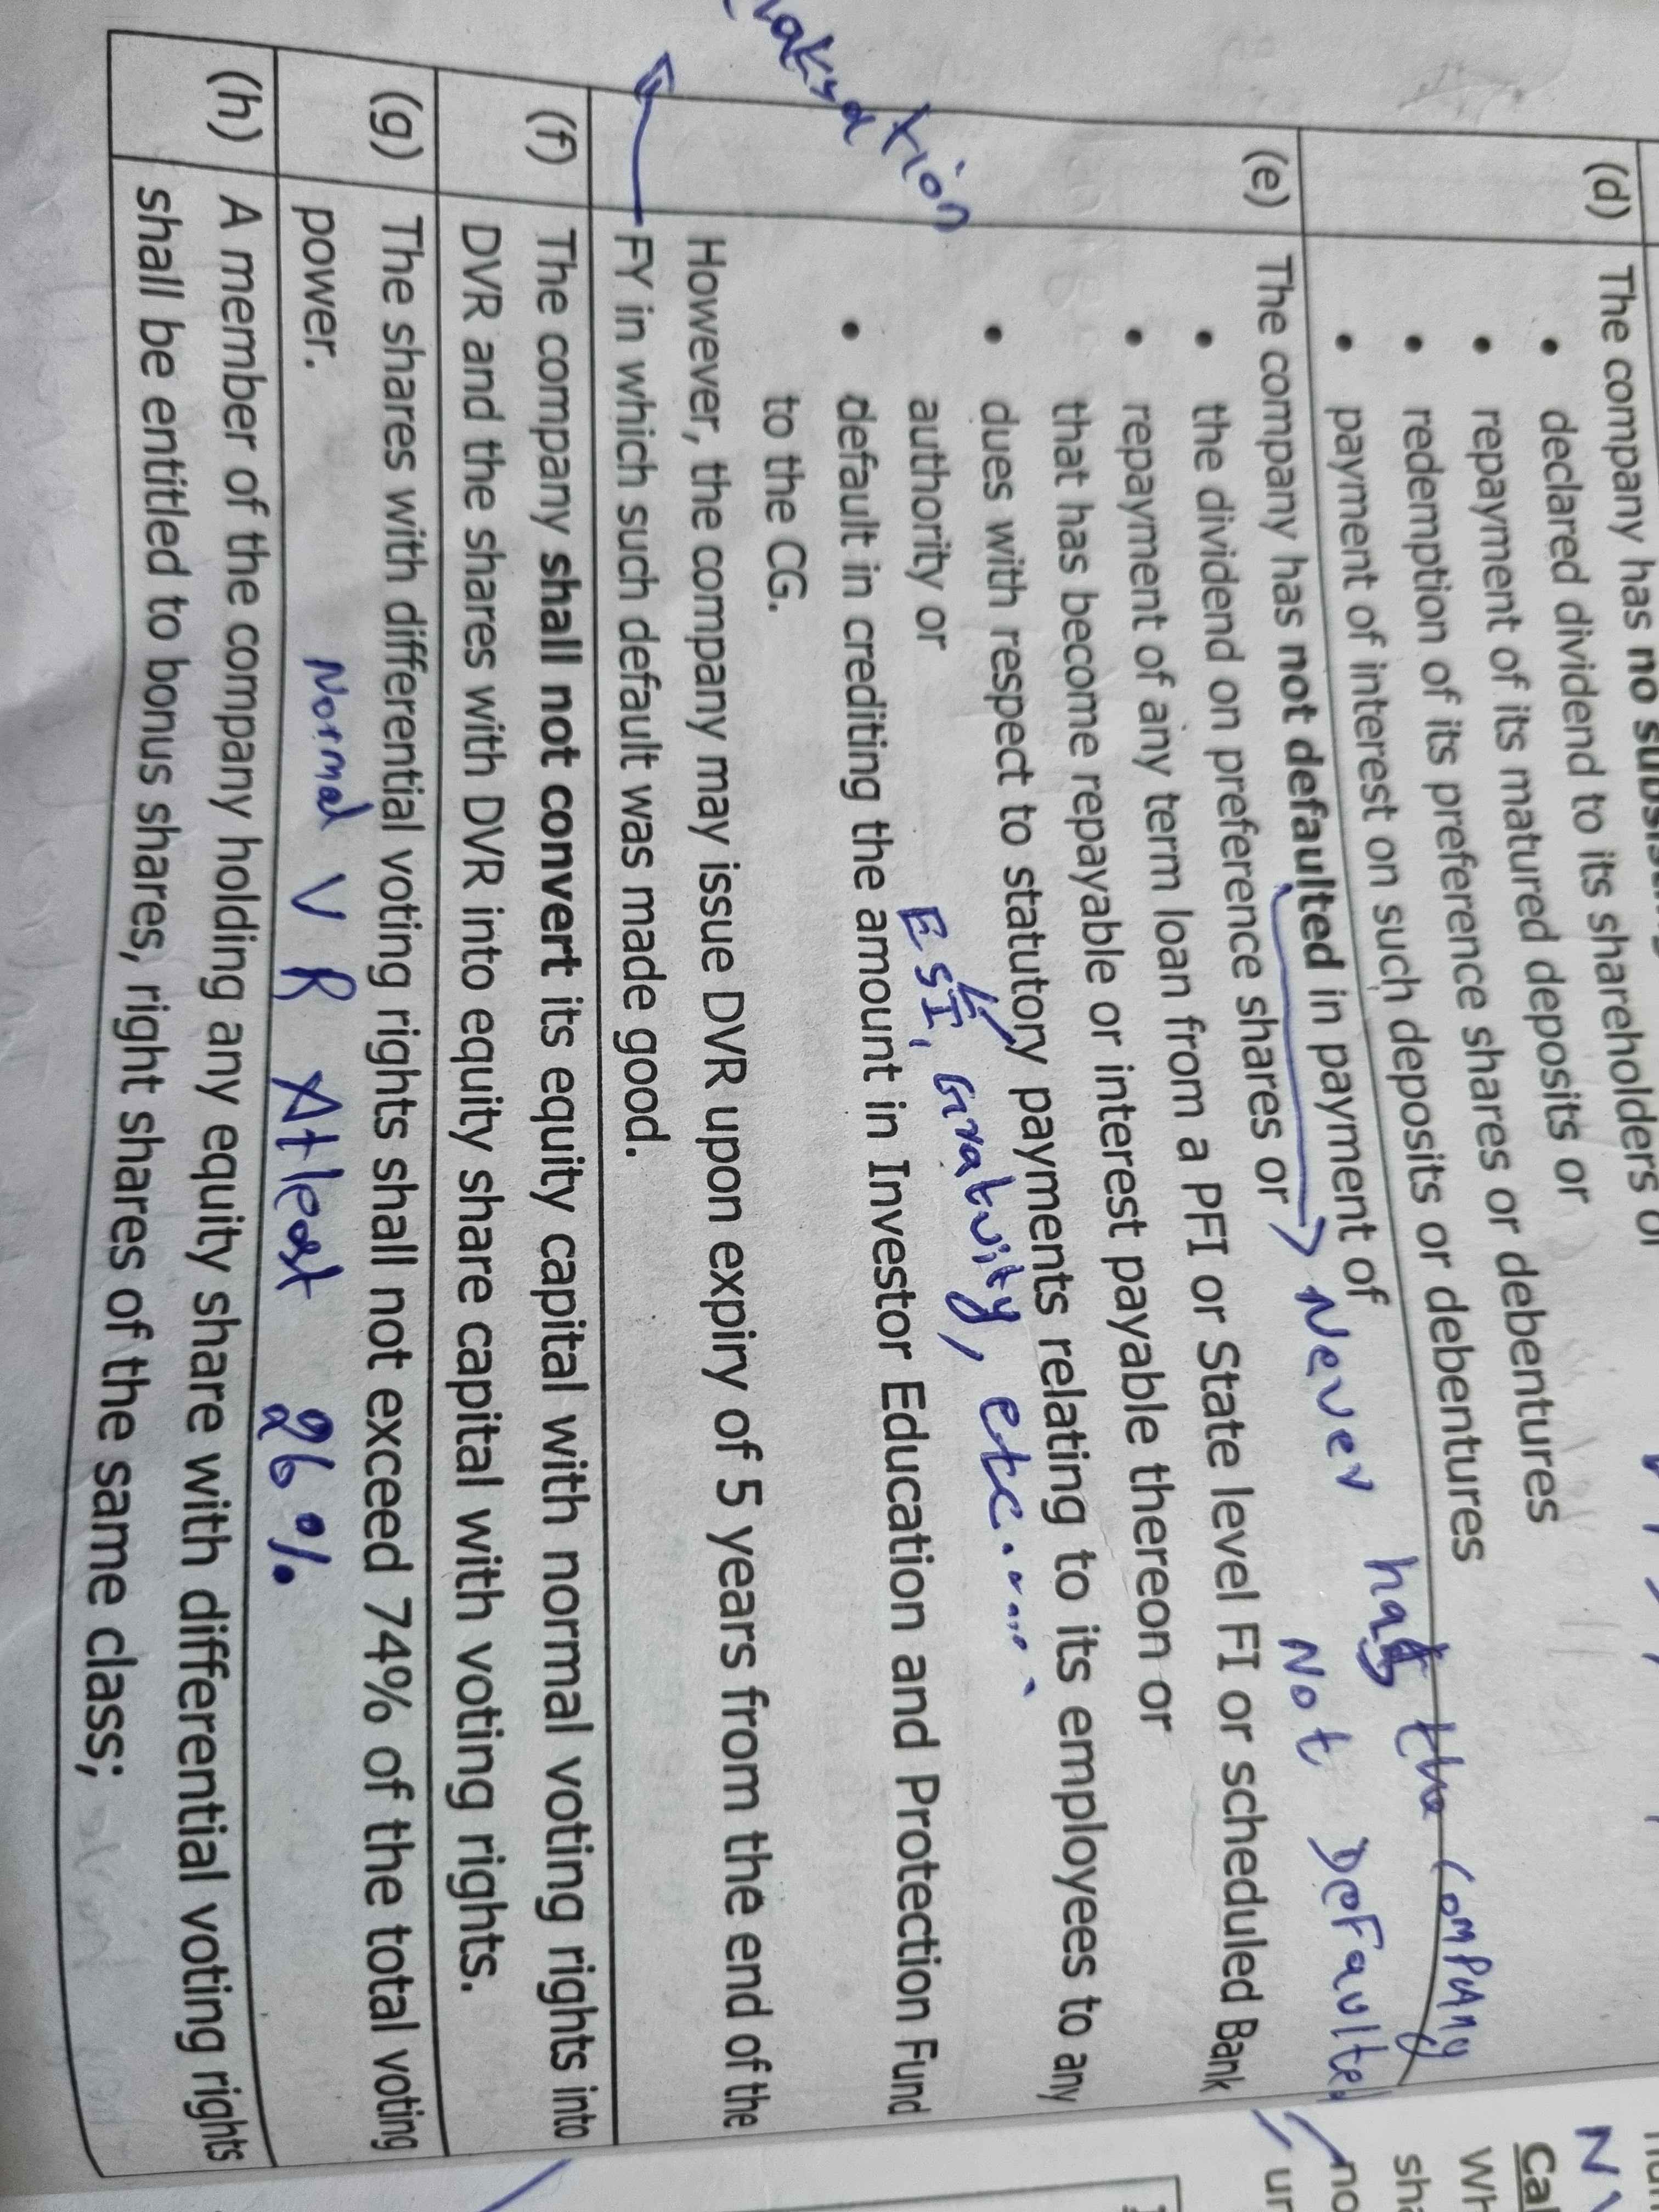 (d) The company has no subsisting
declared dividend to its shareholders or
• repayment of its matured deposits or
• redemption of its preference shares or debentures
• payment of interest on such deposits or debentures
(e) The company has not defaulted in payment of
Never has the Company
Not Defaulted
• the dividend on preference shares or
• repayment of any term loan from a PFI or State level FI or scheduled Bank
that has become repayable or interest payable thereon or
• dues with respect to statutory payments relating to its employees to any
authority or
ESI, Gratuity, etc.....
• default in crediting the amount in Investor Education and Protection Fund
to the CG.
However, the company may issue DVR upon expiry of 5 years from the end of the
FY in which such default was made good.
(f) The company shall not convert its equity capital with normal voting rights into
DVR and the shares with DVR into equity share capital with voting rights.
(g) The shares with differential voting rights shall not exceed 74% of the total voting
power.
Normal V R Atleast 26%.
(h) A member of the company holding any equity share with differential voting rights
shall be entitled to bonus shares, right shares of the same class;
Cal
Wh
sha